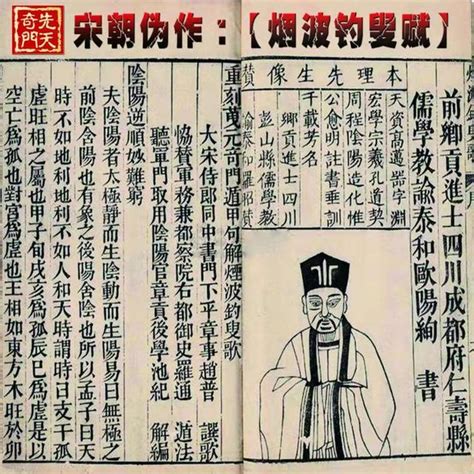 先天
奇門
宋朝伪作：【烟波钓叟赋】
前鄉貢進士四川成都府仁壽縣
儒學教諭泰和歐陽絢 書
本理先生像贊
天資高邁器字淵
宏學宗羲孔道契
周程陰陽造化惟
公愈明註書垂後
千載芳名
鄉貢進士四川
彭山縣儒學教
諭羅昭
重刻萬元奇門遁甲句解煙波釣叟歌
大宋侍郎同中書門下平章事趙普 譔歌
協贊軍務兼都察院右都御史羅通 遁法
聽軍門取用陰陽官章貢後學池紀 解編
陰陽逆順妙難窮
夫陰陽者太極靜而生陰動而生陽易曰無極之
前陰含陽也有象之後陽含陰也所以孟子曰天
時不如地利地利不如人和天時謂時日支干孤
虛旺相之屬也甲子旬戌亥為孤辰巳為虛是以
空亡為孤也對宮為虛也王相如東方木旺於卯